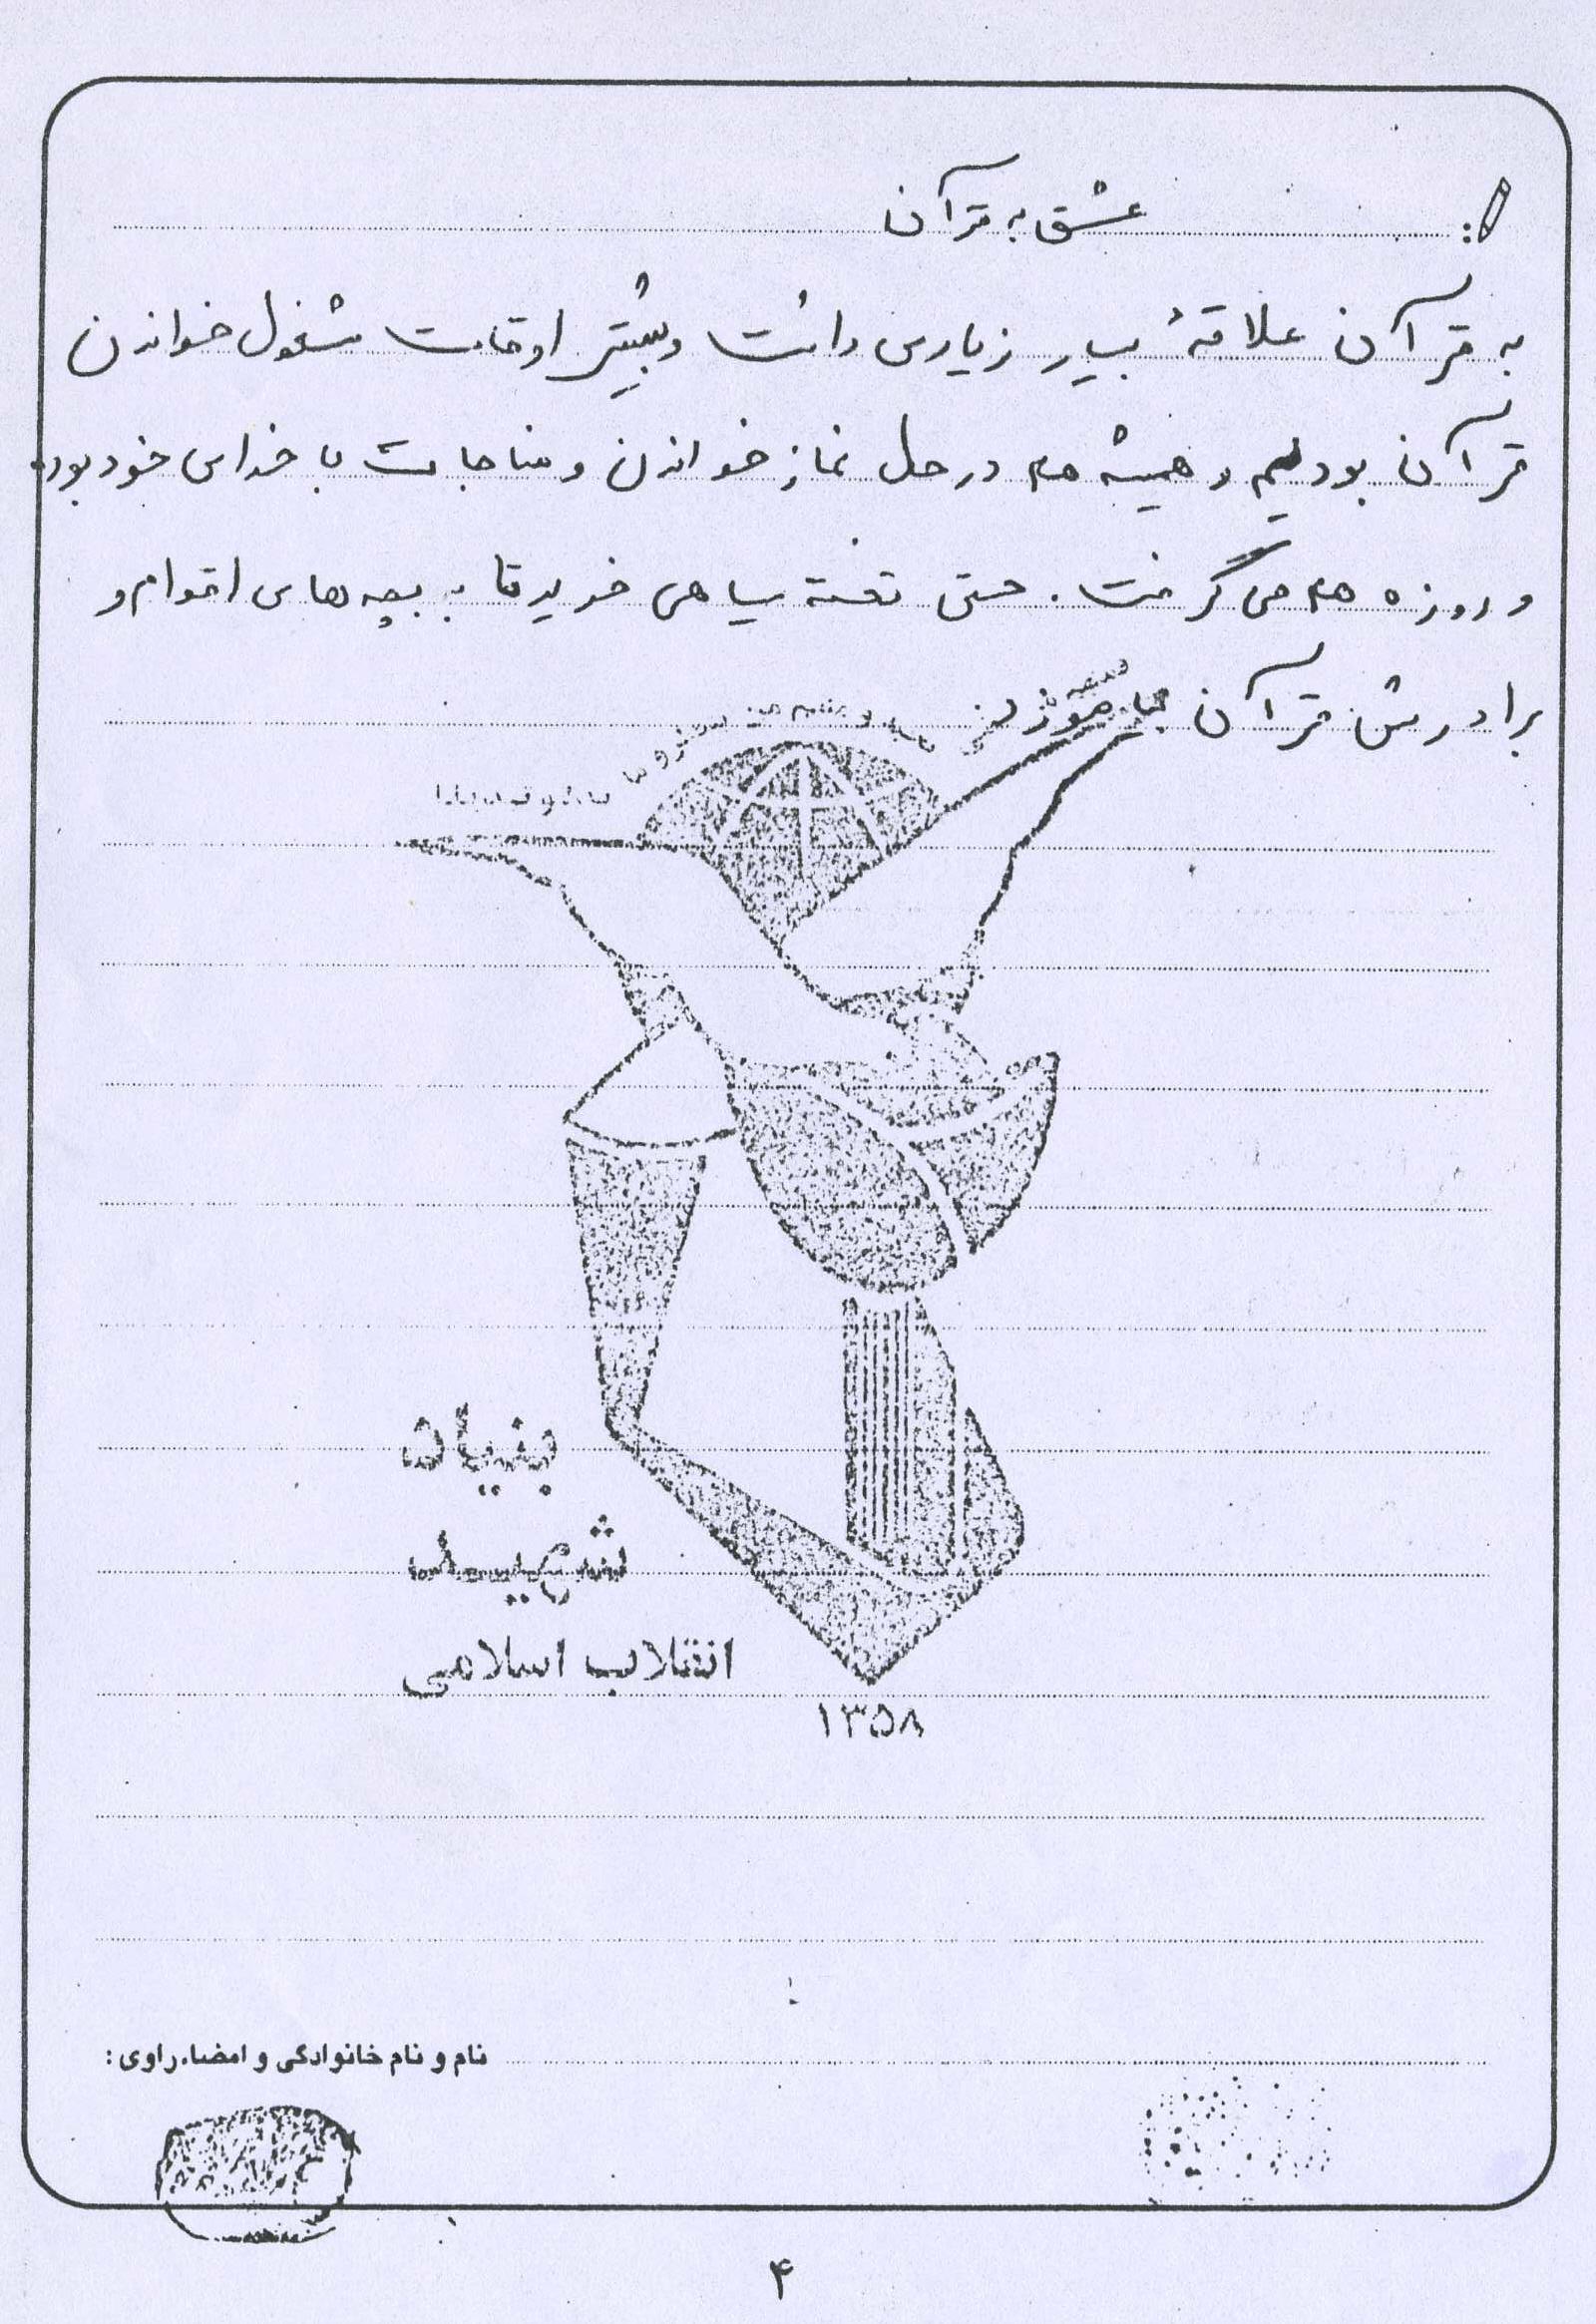 عشق به قرآن
به قرآن علاقهٔ بسیار زیادی داشت و بیشتر اوقات مشغول خواندن
قرآن بودیم و همیشه هم در حال نماز خواندن و مناجات با خدای خود بود
و روزه هم می گرفت. حتی تخته سیاهی خرید تا به بچه های اقوام و
برادرش قرآن بیاموزد.
بنیاد
شهید
انقلاب اسلامی
۱۳۵۸
نام و نام خانوادگی و امضاء راوی:
۴